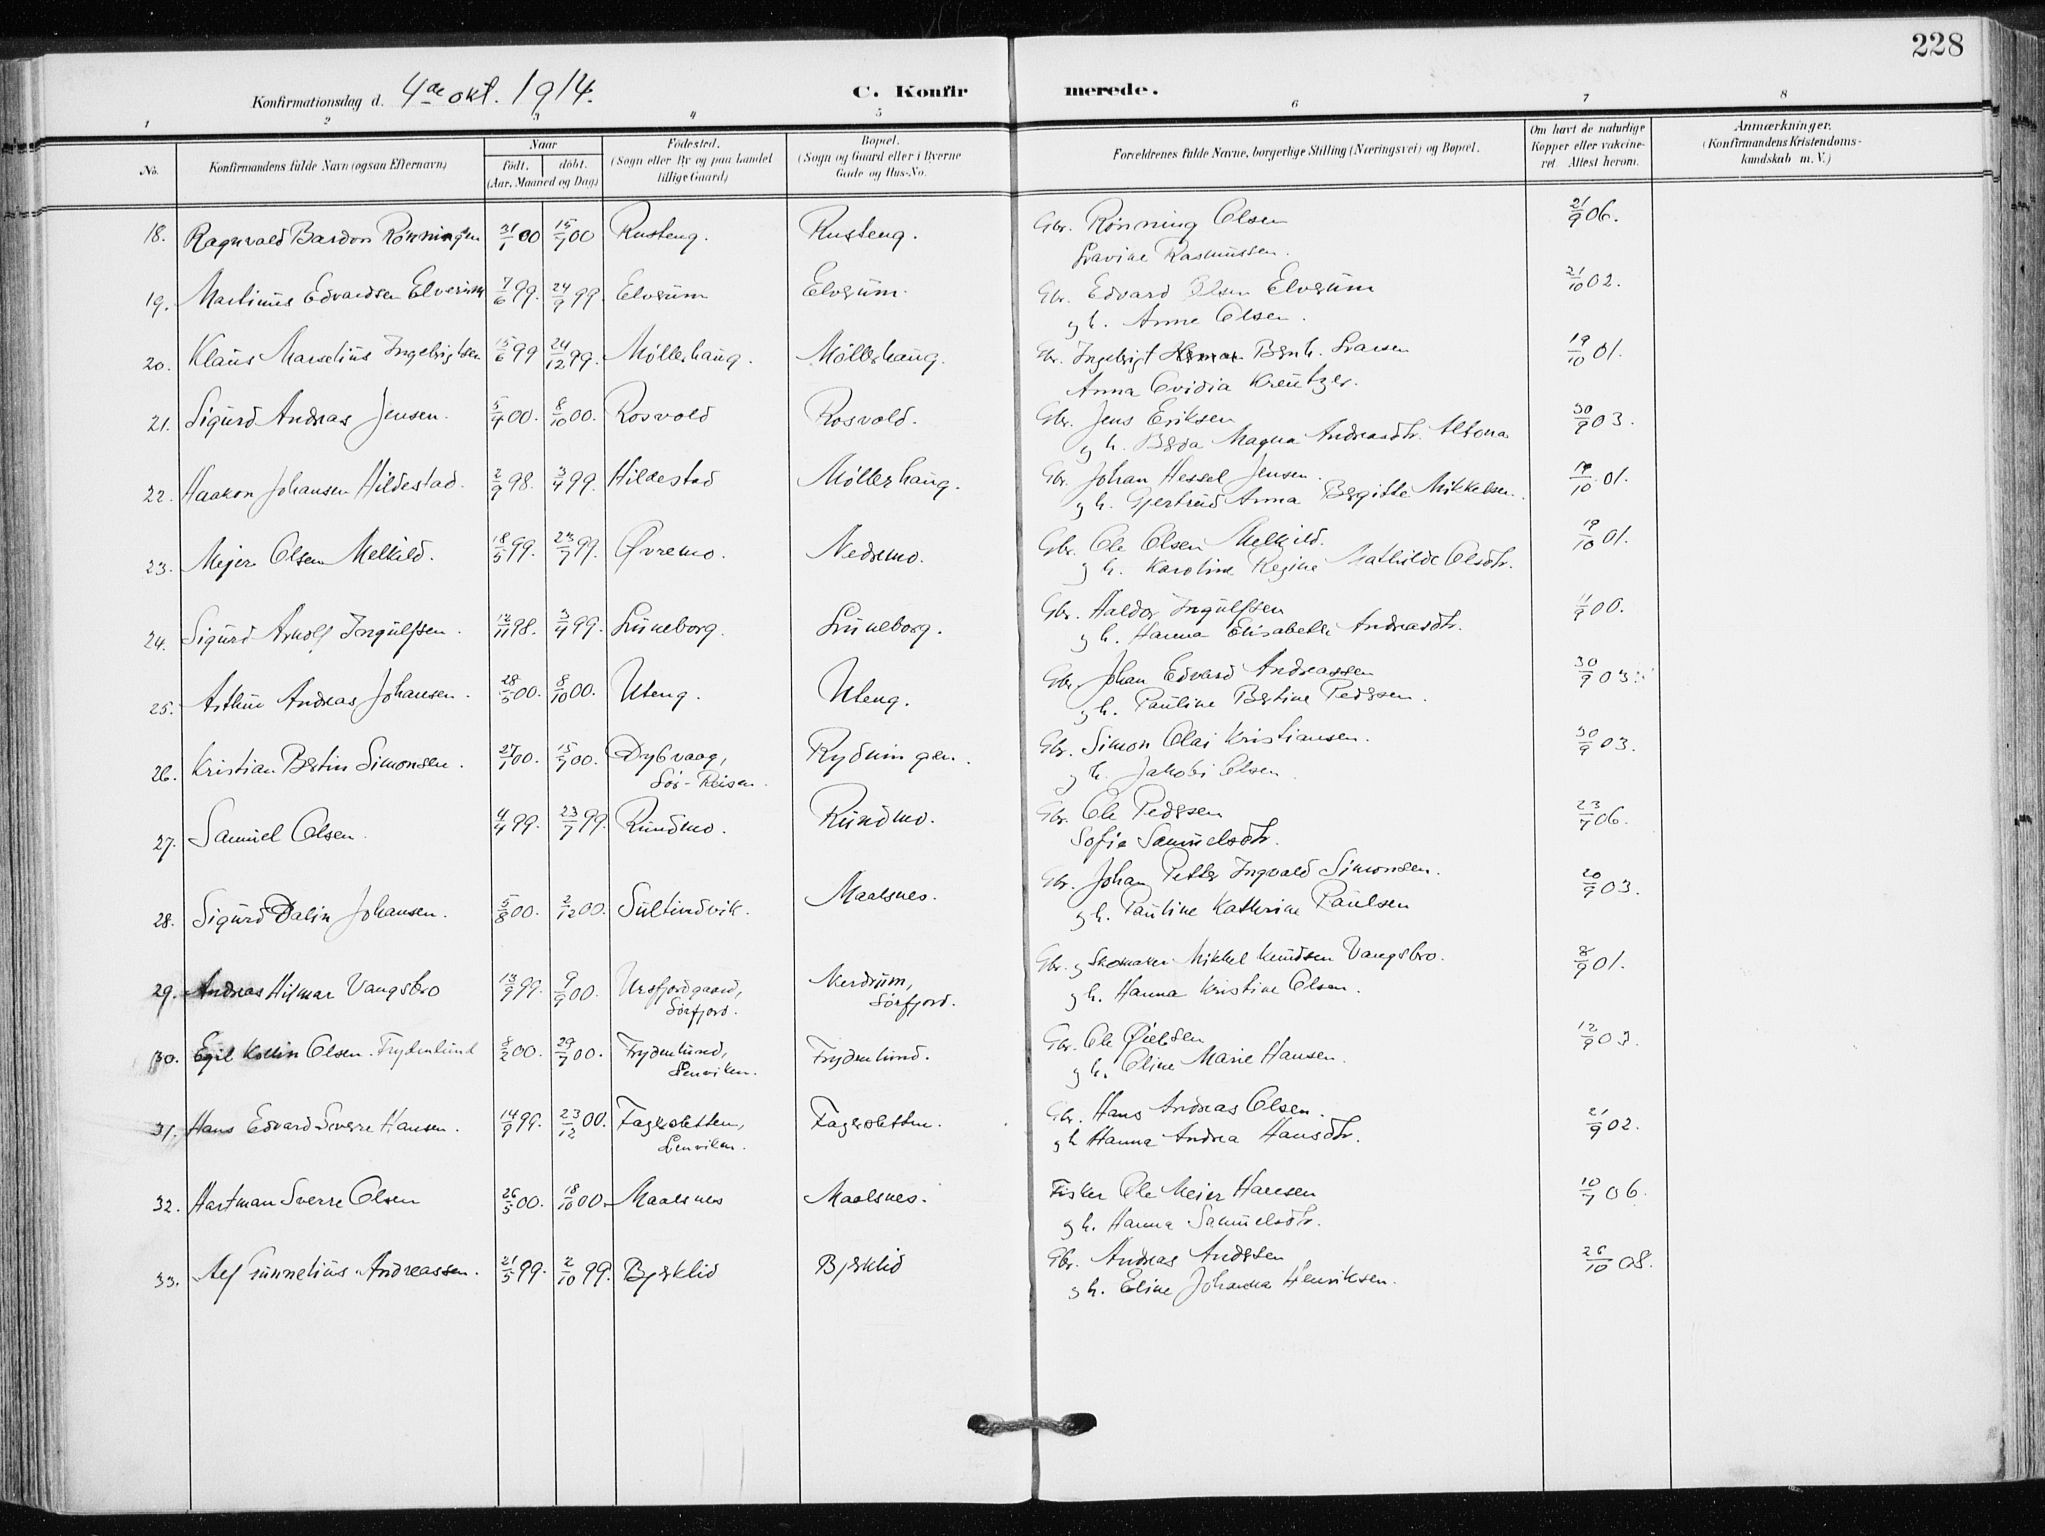 228
Konfirmationsdag d. 4de okt. 1914.
C. Konfirmerede.
1 2 3 4 5 6 7 8
No.
Konfirmandens fulde Navn (ogsaa Efternavn)
Naar
født. døbt.
(Aar, Maaned og Dag)
Fødested.
(Sogn eller By og paa Landet
tillige Gaard)
Bopæl.
(Sogn og Gaard eller i Byerne
Gade og Hus-No.
Forældrenes fulde Navne, borgerlige Stilling (Næringsvei) og Bopæl.
Om havt de naturlige
Kopper eller vakcine-
ret. Attest herom.
Anmærkninger.
(Konfirmandens Kristendoms-
kundskab m. V.)
18. Ragnvald Bardon Rønningen 31/1 00 15/7 00 Rusteng. Rusteng. Gbr. Rønning Olsen 21/9 06.
Lavine Rasmussen.
19. Martinus Edvardsen Elverum 7/6 99. 24/9 99. Elverum Elverum. Gbr. Edvard Olsen Elverum 21/10 02.
g h. Anne Olsen.
20. Klaus Marselius Ingebrigtsen 15/6 99 24/12 99. Møllerhaug. Møllerhaug. Gbr. Ingebrigt Bernh. Larsen 19/10 01.
Anna Ovidia Kreutzer.
21. Sigurd Andreas Jensen. 5/4 00. 8/10 00. Rosvold Rosvold. Gbr. Jens Eriksen 30/9 03.
g h. Berda Magna Andreasdtr. Altona
22. Haakon Johansen Hildestad. 2/9 98. 3/4 99. Hildestad Møllerhaug. Gbr. Johan Hessel Jensen. 19/10 01.
g h. Gjertrud Anna Bergitte Mikkelsen.
23. Mejer Olsen Melkild. 18/5 99. 23/7 99. Øvremo. Nedremo. Gbr. Ole Olsen Melkild. 19/10 01.
g h. Karoline Regine Mathilde Olsdtr.
24. Sigurd Arnolf Ingulfsen. 12/11 98. 3/4 99. Luneborg. Luneborg. Gbr. Haldor Ingulfsen 11/9 00.
g h. Hanna Elisabeth Andreasdtr.
25. Arthur Andreas Johansen. 28/5 00. 8/10 00. Uteng. Uteng. Gbr. Johan Edvard Andreassen 30/9 03.
g h. Pauline Bertine Pedersen.
26. Kristian Bertin Simonsen. 27/1 00. 15/7 00. Dybvaag, Rydningen. Gbr. Simon Olai Kristiansen. 30/9 03.
Sør-Reisen. g h. Jakobi Olsen
27. Samuel Olsen. 4/4 99. 23/7 99. Rundmo. Rundmo. Gbr. Ole Pedersen 23/7 06.
Sofie Samuelsdtr.
28. Sigurd Dalin Johansen. 5/8 00. 2/12 00. Sultindvik. Maalsnes. Gbr. Johan Petter Ingvald Simonsen. 20/9 03.
g h. Pauline Kathrine Paulsen
29. Andreas Hilmar Vangsbro 13/9 99. 9/9 00. Ursfjordgaard, Nerdrum, Gbr. g Skomaker Mikkel Knudsen Vangsbro. 8/9 01.
Sørfjord. Sørfjord. g h. Hanna Kristine Olsen.
30. Egil Kollin Olsen. Frydenlund 8/2 00. 29/7 00. Frydenlund, Frydenlund. Gbr. Ole Øielsen 12/9 03.
Lenviken. g h. Oline Marie Hansen.
31. Hans Edvard Sverre Hansen. 14/9 99. 23/12 00. Fagersletten, Fagersletten. Gbr. Hans Andreas Olsen. 21/9 02.
Lenviken. g h Hanna Andrea Hansdtr.
32. Hartman Sverre Olsen 26/5 00. 18/10 00. Maalsnes Maalsnes. Fisker Ole Meier Hansen 10/7 06.
g h. Hanna Samuelsdtr.
33. Alf Gunnelius Andreassen. 21/5 99. 2/10 99. Bjerklid Bjerklid Gbr. Andreas Andersen 26/10 08.
g h. Eline Johanna Henriksen.